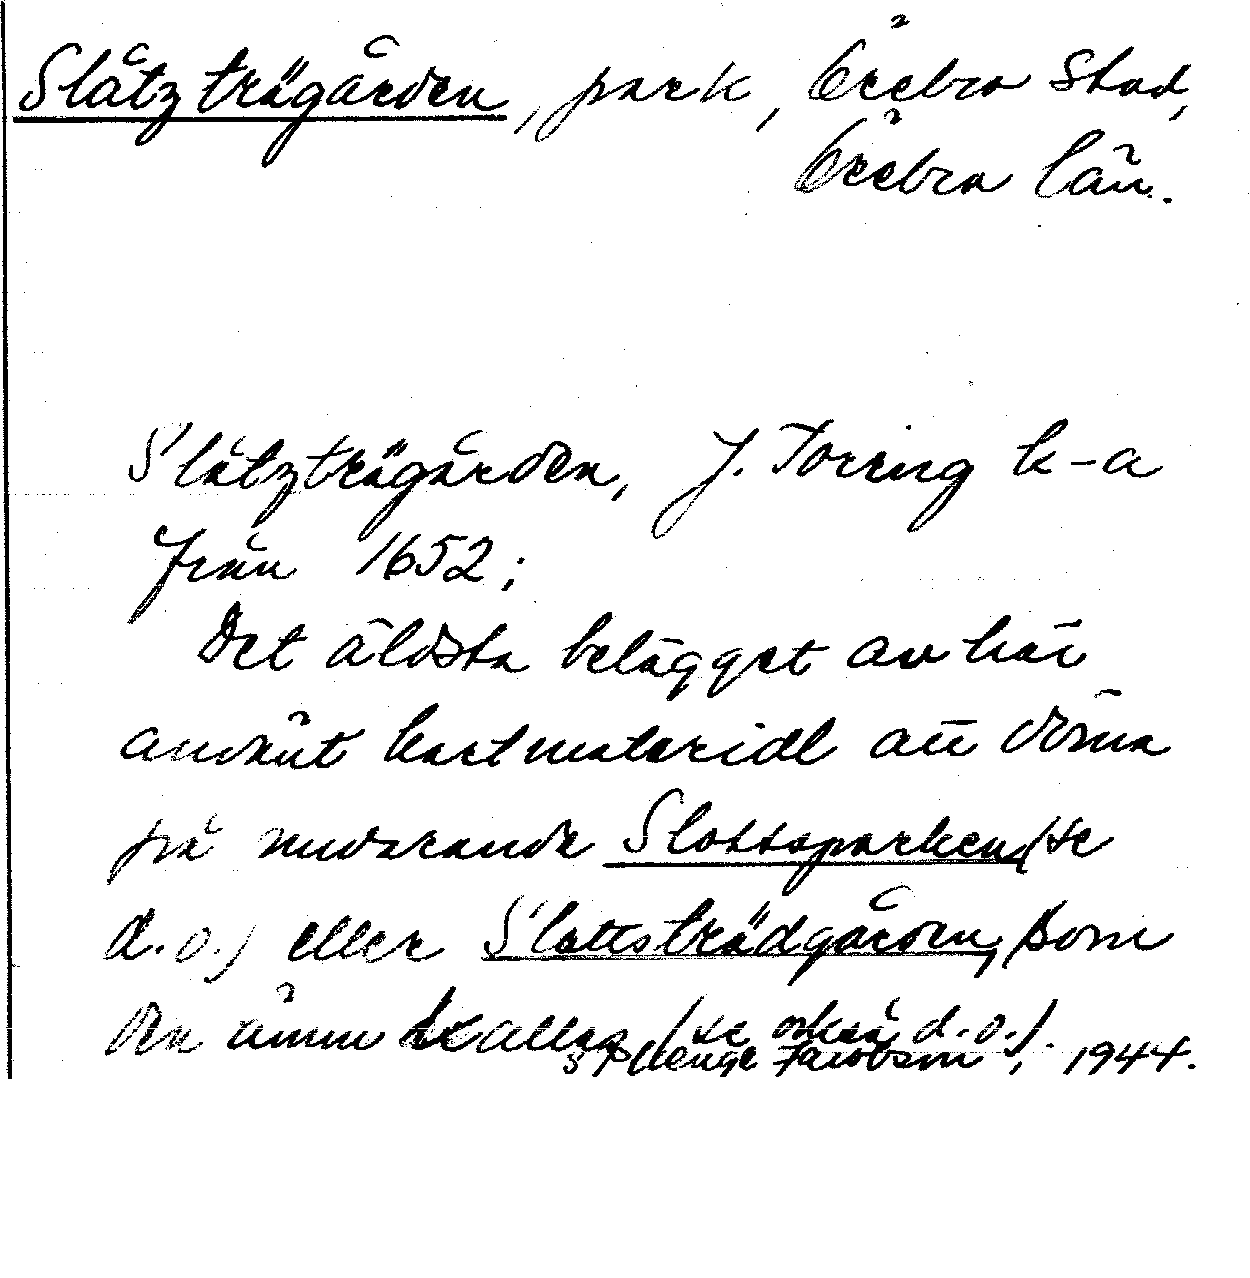 Slåtz trägården, park, Örebro Stad,
Örebro län.
Slåtzträgården, J. Torring k-a
från 1652;
Det äldsta belägget av här
använt kartmaterial att döma
på nuvarande Slottsparken (se
d.o.) eller Slottsträdgården, som
den ännu kallas (se också d.o.).
Jacobson, 1944.